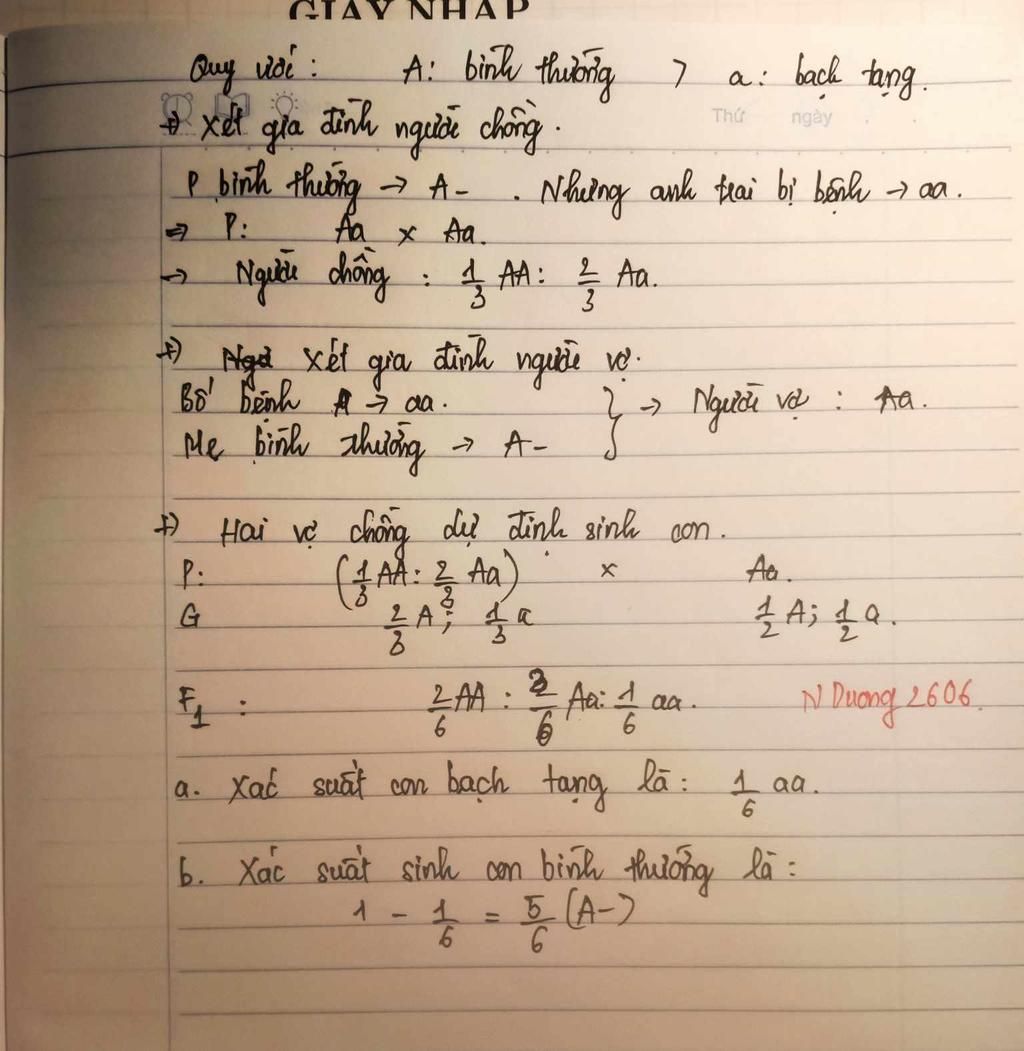 GIẤY NHÁP
Quy ước : A: bình thường > a: bạch tạng.
Thứ ngày
+) Xét gia đình người chồng.
P bình thường → A- . Nhưng anh trai bị bệnh → aa.
⇒ P: Aa x Aa.
→ Người chồng : 1/3 AA : 2/3 Aa.
+) Xét gia đình người vợ.
Bố bệnh → aa. } → Người vợ : Aa.
Mẹ bình thường → A-
+) Hai vợ chồng dự định sinh con.
P: (1/3 AA : 2/3 Aa) x Aa.
G 2/3 A ; 1/3 a 1/2 A; 1/2 a.
F1 : 2/6 AA : 3/6 Aa : 1/6 aa. N Duong 2606
a. Xác suất con bạch tạng là : 1/6 aa.
b. Xác suất sinh con bình thường là :
1 - 1/6 = 5/6 (A-)